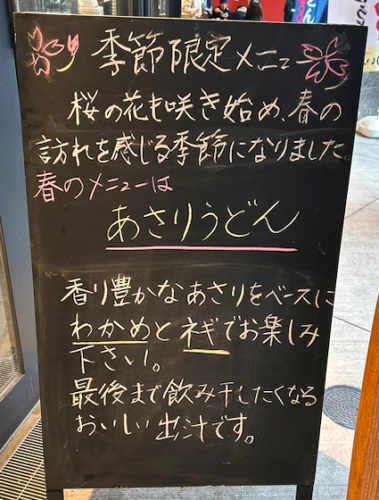 季節限定メニュー
桜の花も咲き始め、春の
訪れを感じる季節になりました。
春のメニューは
あさりうどん
香り豊かなあさりをベースに
わかめとネギでお楽しみ
下さい。
最後まで飲み干したくなる
おいしい出汁です。